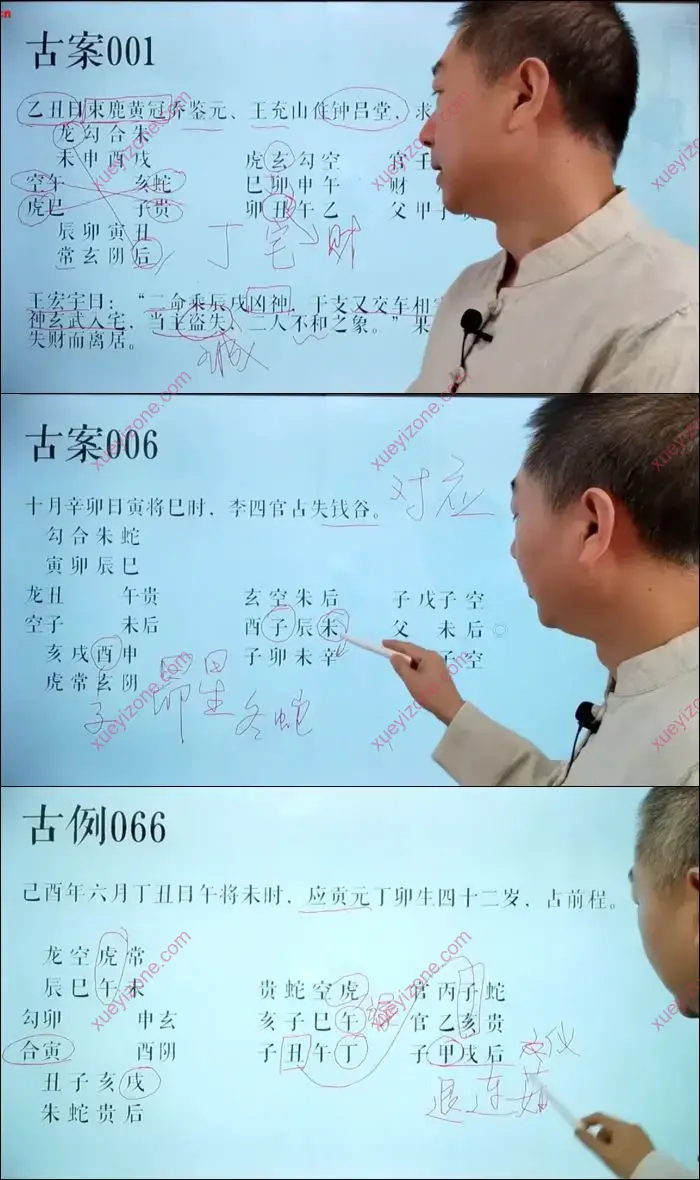 古案001
乙丑日束鹿黄冠乔鉴元、王充山住钟吕堂，求
龙勾合朱
未申酉戌 虎玄勾空 官壬
空午 亥蛇 巳卯申午 财
虎巳 子贵 卯丑午乙 父甲子贵
辰卯寅丑
常玄阴后
丁宅财
王宏宇曰：“二命乘辰戌凶神，干支又交车相害
神玄武入宅，当主盗失，二人不和之象。”果
失财而离居。
xueyizone.com
xueyizone.com
xueyizone.com
xueyizone.com
古案006
对应
十月辛卯日寅将巳时，李四官占失钱谷。
勾合朱蛇
寅卯辰巳
龙丑 午贵 玄空朱后 子戊子空
空子 未后 酉子辰未 父 未后
亥戌酉申 子卯未辛 子空
虎常玄阴
子 昴星 冬蛇
xueyizone.com
xueyizone.com
xueyizone.com
xueyizone.com
古例066
己酉年六月丁丑日午将未时，应贡元丁卯生四十二岁，占前程。
龙空虎常
辰巳午未 贵蛇空虎 官丙子蛇
勾卯 申玄 亥子巳午 官乙亥贵
合寅 酉阴 子丑午丁 子甲戌后
丑子亥戌
朱蛇贵后
退连茹
xueyizone.com
xueyizone.com
xueyizone.com
xueyizone.com